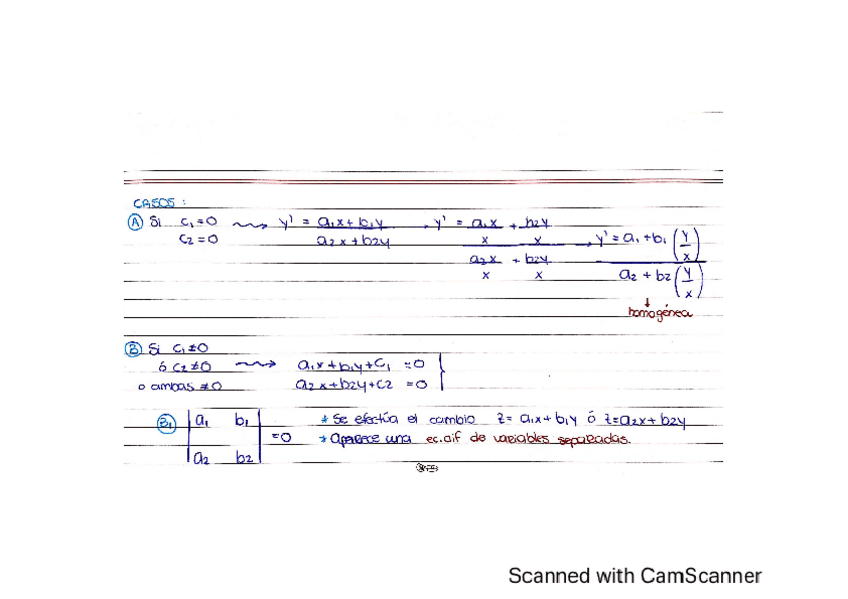 CASOS:
Ⓐ Si c₁=0 ⟿ y' = a₁x + b₁y / a₂x + b₂y , y' = a₁x/x + b₂y/x / a₂x/x + b₂y/x , y' = a₁ + b₁ (y/x) / a₂ + b₂ (y/x)
c₂=0
↓
homogénea
Ⓑ Si c₁≠0
ó c₂≠0 ⟿ a₁x + b₁y + c₁ = 0
o ambas ≠0 a₂x + b₂y + c₂ = 0
B₁ |a₁ b₁| * Se efectúa el cambio z = a₁x + b₁y ó z = a₂x + b₂y
=0 * Aparece una ec. dif de variables separadas.
|a₂ b₂|
Scanned with CamScanner